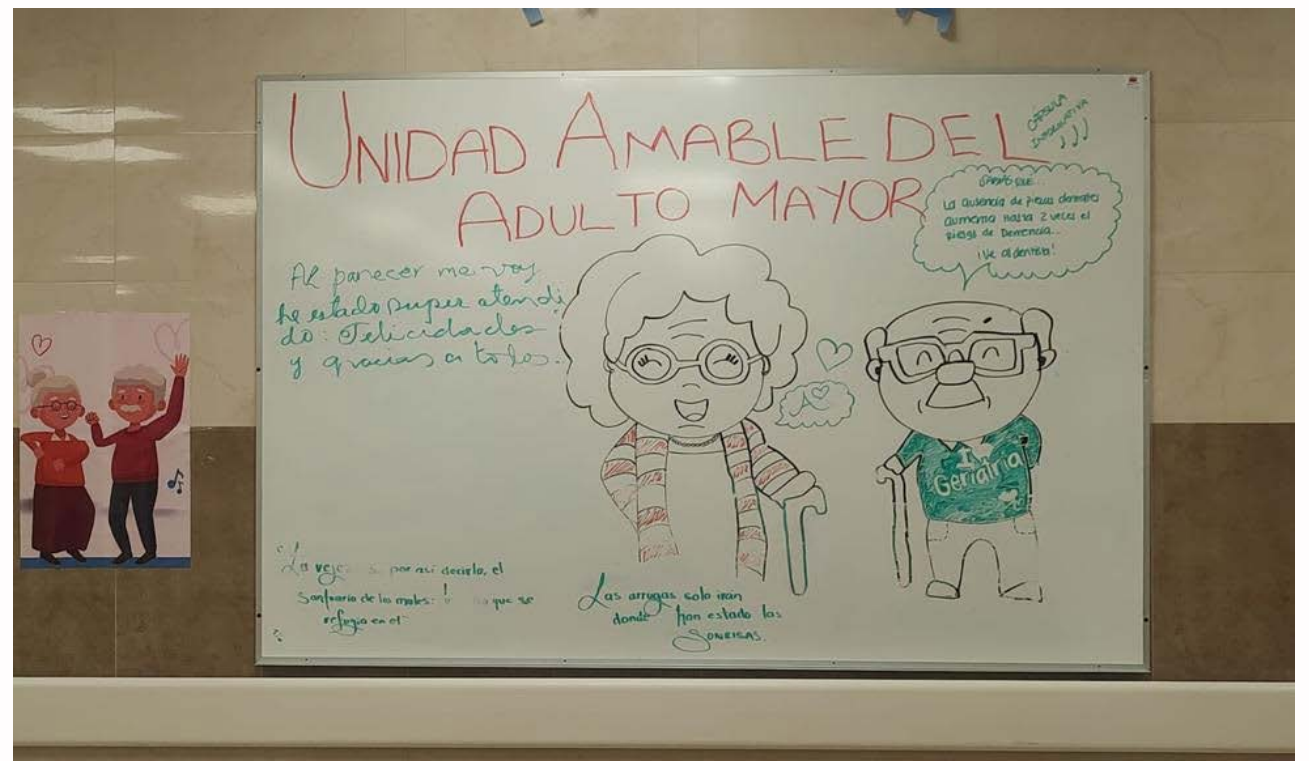 UNIDAD AMABLE DEL
ADULTO MAYOR
CÁPSULA
INFORMATIVA
SABÍAS QUE...
La ausencia de piezas dentales
aumenta hasta 2 veces el
riesgo de Demencia..
¡Ve al dentista!
Al parecer me voy
he estado super atendi
do: Felicidades
y gracias a todos.
A
I
Geriatría
"La vejez por así decirlo, el
Santuario de los males: que se
refugia en el
Las arrugas solo irán
donde han estado las
SONRISAS.